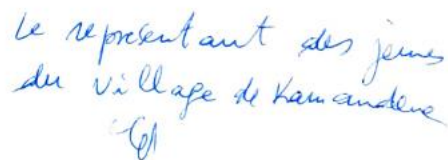 Le representant des jeunes
du village de Kamandena